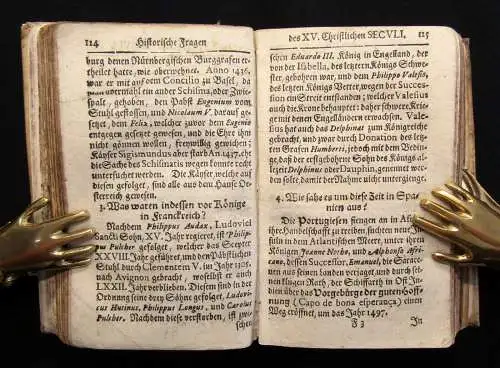 114 Historische Fragen
burg denen Nürnbergischen Burggrafen er-
theilet hatte, wie oberwehnet. Anno 1436.
war er mit auf dem Concilio zu Basel, da
man übermühl ein ander Schisma, oder Zwie-
spalt, gehaben, den Pabst Eugenium vom
Stuhl gestossen, und Nicolaum V. darauf ge-
setzet, dem Felix, welcher zuvor dem Eugenio
entgegen gesetzet gewesen, und die Ehre ihn
nicht gönnen wollen, freywillig gewichen;
Käyser Sigismundus aber starb An. 1437. ehe die
Sache des Schismatis wegen konnte recht
untersuchet werden. Die Käyser, welche auf
diesen gefolget, sind alle aus dem Hause Oe-
sterreich gewesen.
3. Was waren indessen vor Könige
in Franckreich?
Nachdem Philippus Audax, Ludovici
Sancti Sohn, XV. Jahr regieret, ist Philip-
pus Pulcher gefolget, welcher das Scepter
XXVIII Jahr geführet, und den Päbstlichen
Stuhl durch Clementem V. im Jahr 1305.
nach Avignon gebracht, woselbst er auch
LXXII. Jahr verblieben. Diesen sind in der
Ordnung seine drey Söhne gefolget, Ludovi-
cus Hutinus, Philippus Longus, und Carolus
Pulcher. Nachdem diese verstorben, ist zwi-
schen
des XV. Christlichen SECVLI. 115
schen Eduardo III. König in Engelland, der
von der Isabella, des letztern Königs Schwe-
ster, gebohren war, und dem Philippo Valesio,
des letzten Königs Vetter, wegen der Succes-
sion ein Streit entstanden; welcher Valesius
auch die Krone behauptet: daher schwere Krie-
ge mit denen Engelländern erwachsen. Vale-
sius hat auch das Delphinat zum Königreiche
gebracht, und zwar durch Donation des letz-
ten Grafen Humberti, jedoch mit dem Bedin-
ge, daß der erstgebohrne Sohn des Königs al-
lezeit Delphinus oder Dauphin, genennet wer-
den solte, damit der Nahme nicht untergienge.
4. Wie sahe es um diese Zeit in Spa-
nien aus?
Die Portugiesen fiengen an in Africa
ihr Handelschafft zu treiben, suchten neue In-
suln in dem Atlantischen Meere, unter ihren
Königen Joanne Notho, und Alphonso Afri-
cano, dessen Successor, Emanuel, die Saracenen
aus seinen Landen verjaget, und durch seh-
nen klugen Rath, der Schiffarth in Ost-In-
dien über das Vorgebürge der guten Hoff-
nung (Capo de bona esperança) einen
Weg eröffnet, um das Jahr 1497.
F 3 In